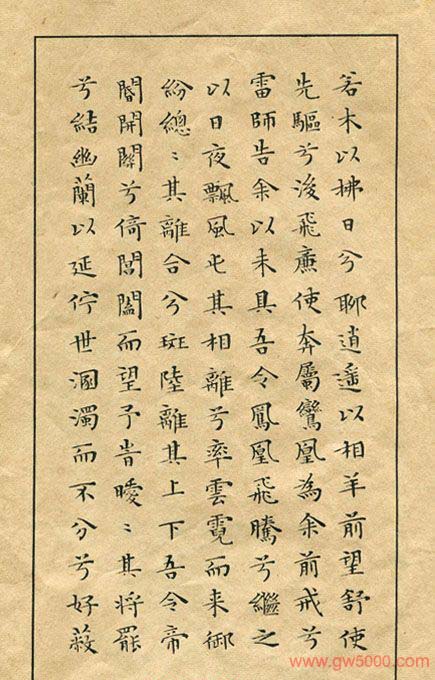 若木以拂日兮聊逍遥以相羊前望舒使
先驅兮後飛廉使奔屬鸞凰為余前戒兮
雷師告余以未具吾令鳳凰飛騰兮繼之
以日夜飄風屯其相離兮率雲霓而来御
紛總〻其離合兮斑陸離其上下吾令帝
閽開關兮倚閶闔而望予昔曖〻其將罷
兮結幽蘭以延佇世溷濁而不分兮好蔽
www.gw5000.com